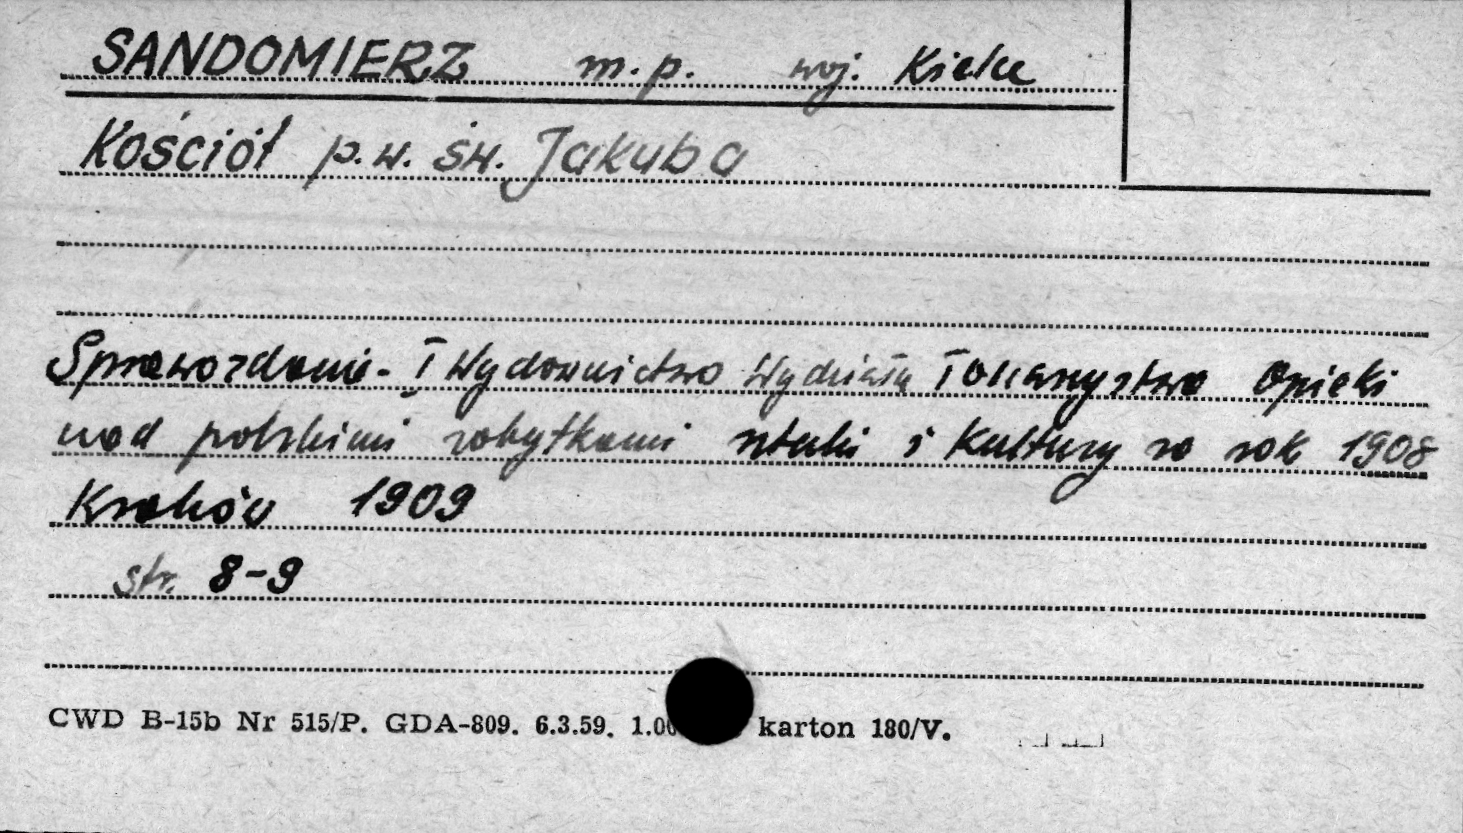 SANDOMIERZ m.p. woj. Kielce
Kościół p.w. św. Jakuba
Sprawozdanie - I Wydawnictwo Wydziału Towarzystwa Opieki
nad polskimi zabytkami sztuki i Kultury za rok 1908
Kraków 1909
str. 8-9
CWD B-15b Nr 515/P. GDA-809. 6.3.59. 1.00 karton 180/V.